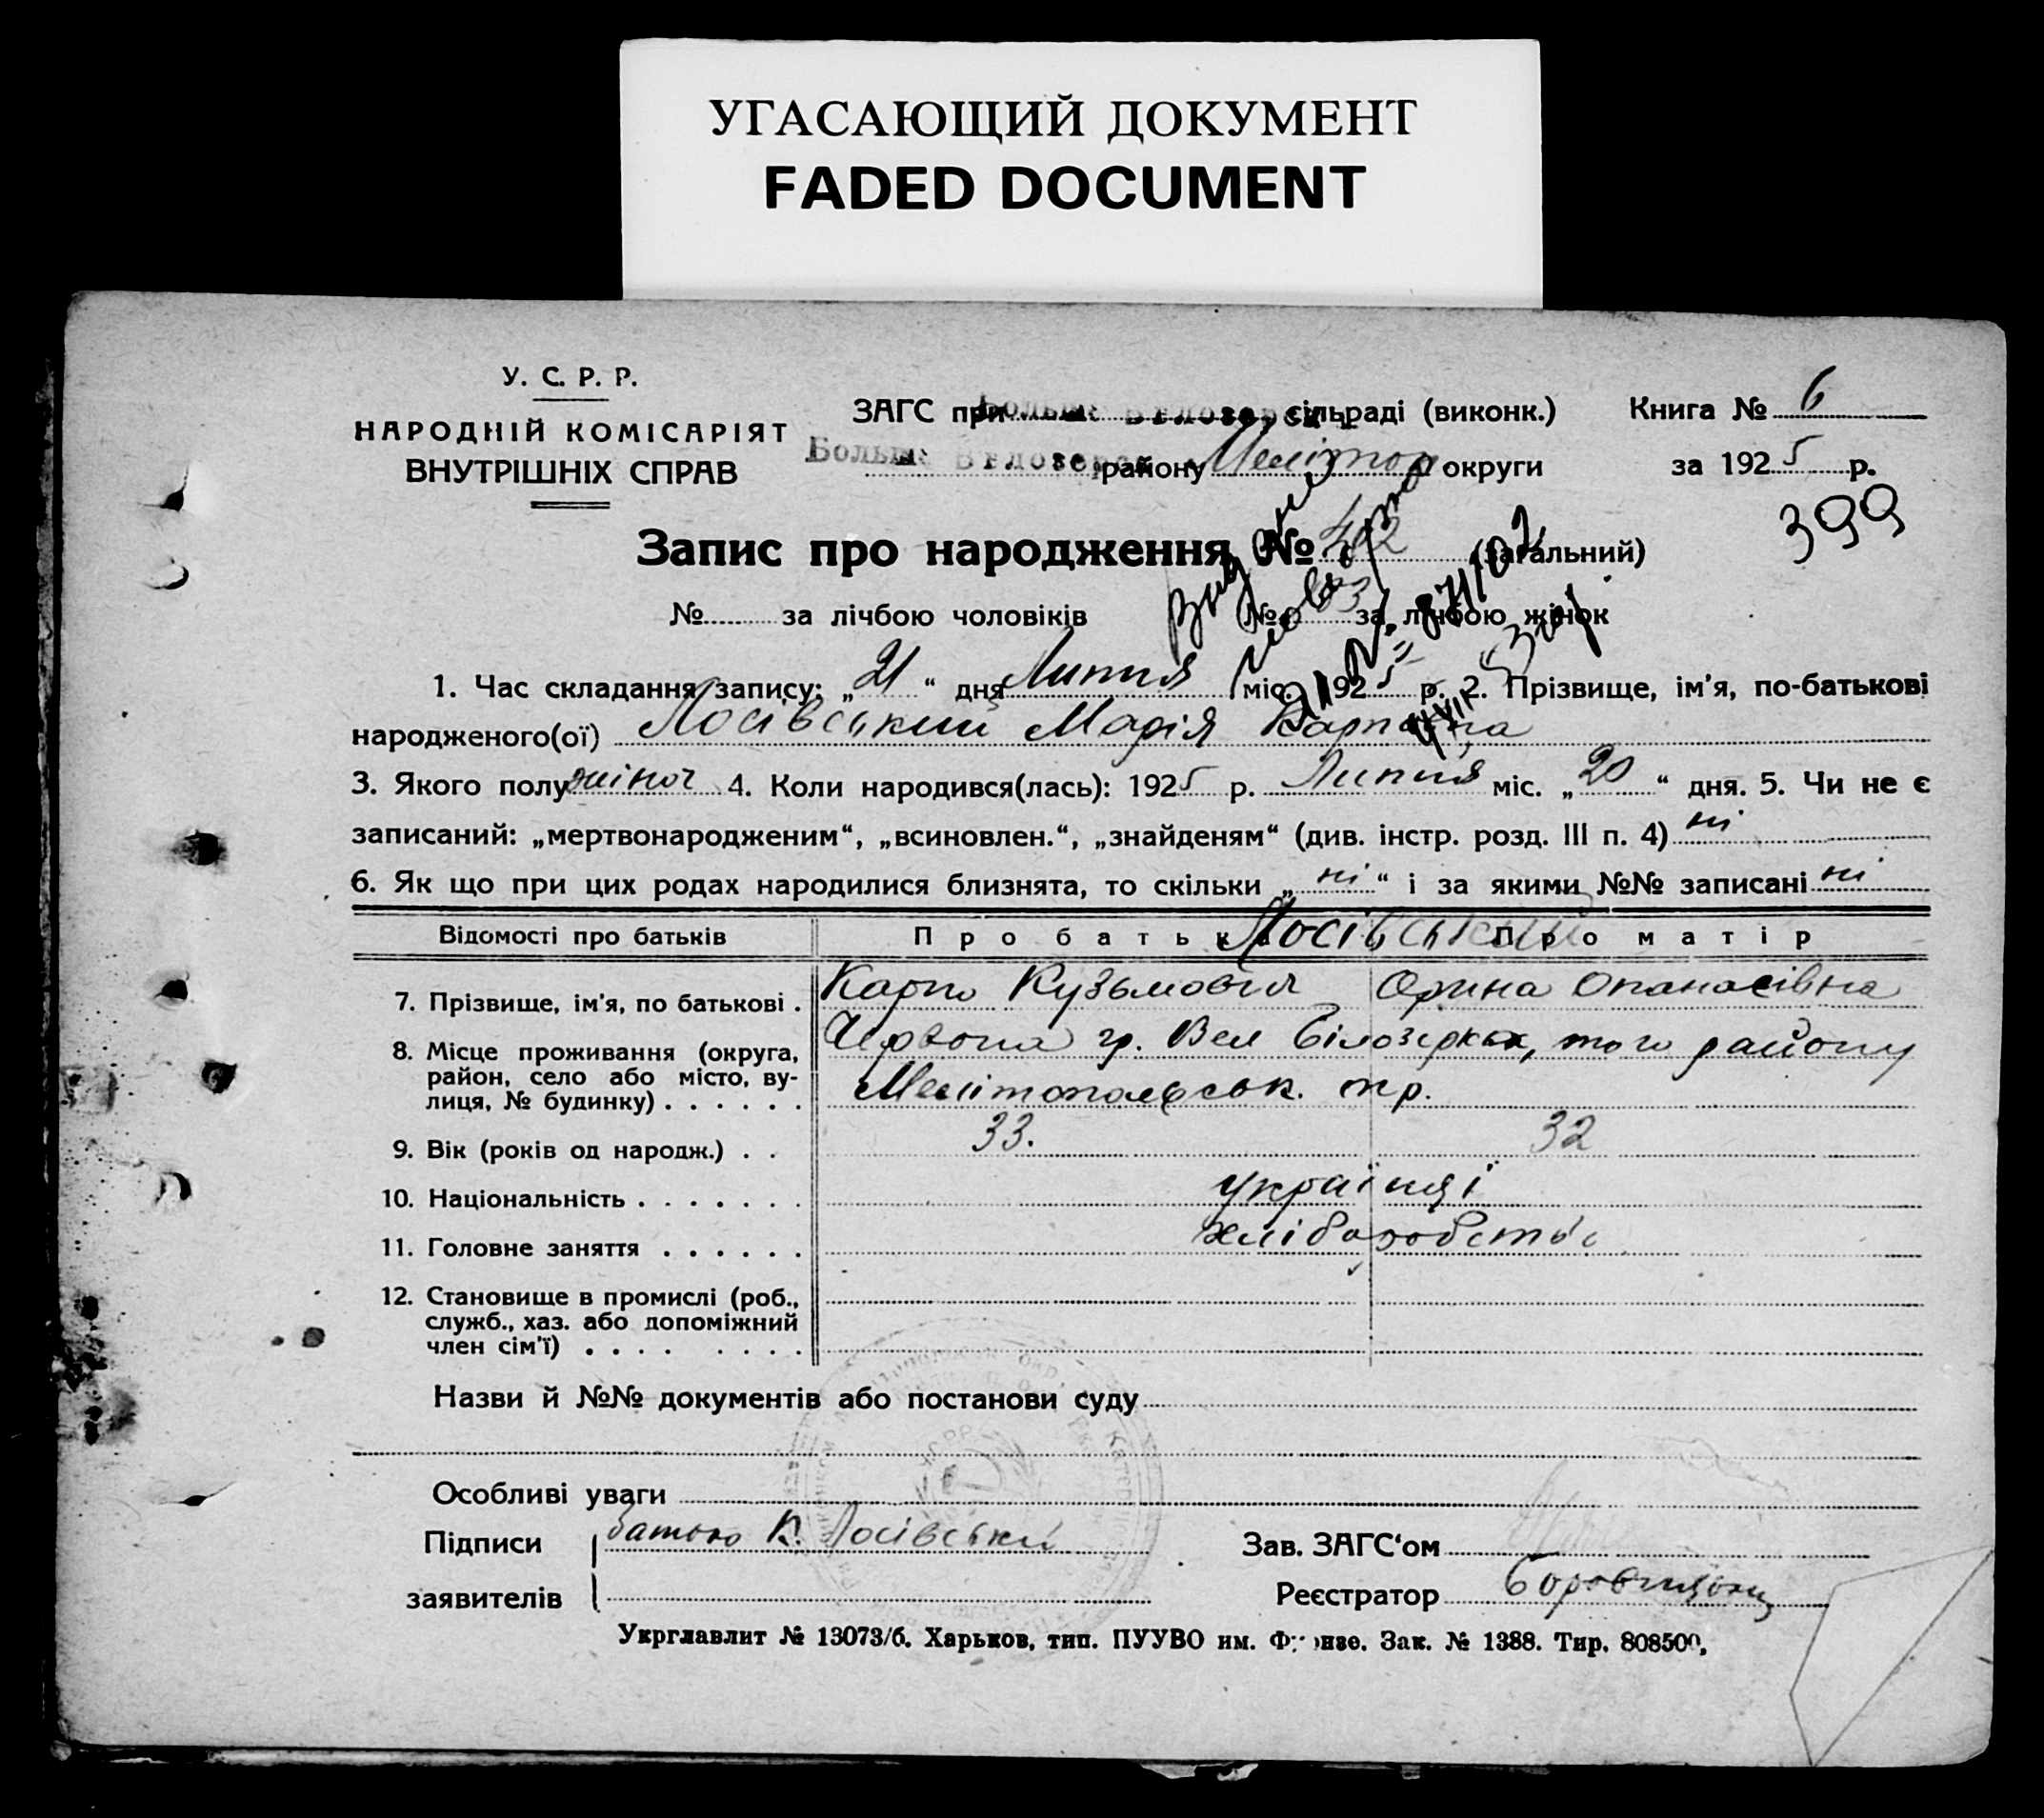 УГАСАЮЩИЙ ДОКУМЕНТ
FADED DOCUMENT
У. С. Р. Р.
НАРОДНІЙ КОМІСАРІЯТ
ВНУТРІШНІХ СПРАВ
ЗАГС при сільраді (виконк.)
району Мелітоп округи
Книга № 6
за 1925 р.
399
Запис про народження № 402 (загальний)
№ за лічбою чоловіків № за лічбою жінок
1. Час складання запису: „21“ дня Липня міс. 1925 р. 2. Прізвище, ім'я, по-батькові
народженого(ої) Лосівський Марія Карпівна
3. Якого полу жіноч 4. Коли народився(лась): 1925 р. Липня міс. „20“ дня. 5. Чи не є
записаний: „мертвонародженим“, „всиновлен.“, „знайденям“ (див. інстр. розд. III п. 4) ні
6. Як що при цих родах народилися близнята, то скільки „ні“ і за якими №№ записані ні
Відомості про батьків Про батька Про матір
Лосівський
7. Прізвище, ім'я, по батькові . Карпо Кузьмович Орина Опанасівна
8. Місце проживання (округа, район, село або місто, вулиця, № будинку) . . . . . . гр. Вел Білозерка, того району
Мелітопольськ. окр.
9. Вік (років од народж.) . . 33. 32
10. Національність . . . . . . . українці
11. Головне заняття . . . . . . хліборобство
12. Становище в промислі (роб.,
служб., хаз. або допоміжний
член сім'ї) . . . . . . . .
Назви й №№ документів або постанови суду
Особливі уваги
Підписи батько К. Лосівський
заявителів
Зав. ЗАГС‘ом
Реєстратор
Укрглавлит № 13073/б. Харьков, тип. ПУУВО им. Фрунзе. Зак. № 1388. Тир. 808500,